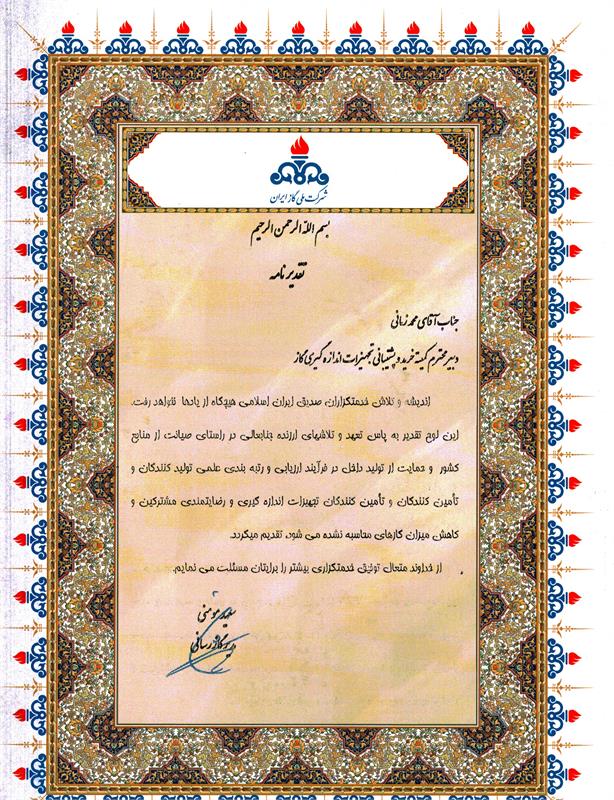 شرکت ملی گاز ایران
بسم الله الرحمن الرحیم
تقدیرنامه
جناب آقای محمد زمانی
دبیر محترم کمیته خرید و پشتیبانی تجهیزات اندازه گیری گاز
اندیشه و تلاش خدمتگزاران صدیق ایران اسلامی هیچگاه از یادها نخواهد رفت.
این لوح تقدیر به پاس تعهد و تلاشهای ارزنده جنابعالی در راستای صیانت از منابع
کشور و حمایت از تولید داخل در فرآیند ارزیابی و رتبه بندی علمی تولید کنندگان و
تأمین کنندگان و تأمین کنندگان تجهیزات اندازه گیری و رضایتمندی مشترکین و
کاهش میزان گازهای محاسبه نشده می شود، تقدیم میگردد.
از خداوند متعال توفیق خدمتگزاری بیشتر را برایتان مسئلت می نمایم.
سعید مومنی
مدیر گازرسانی